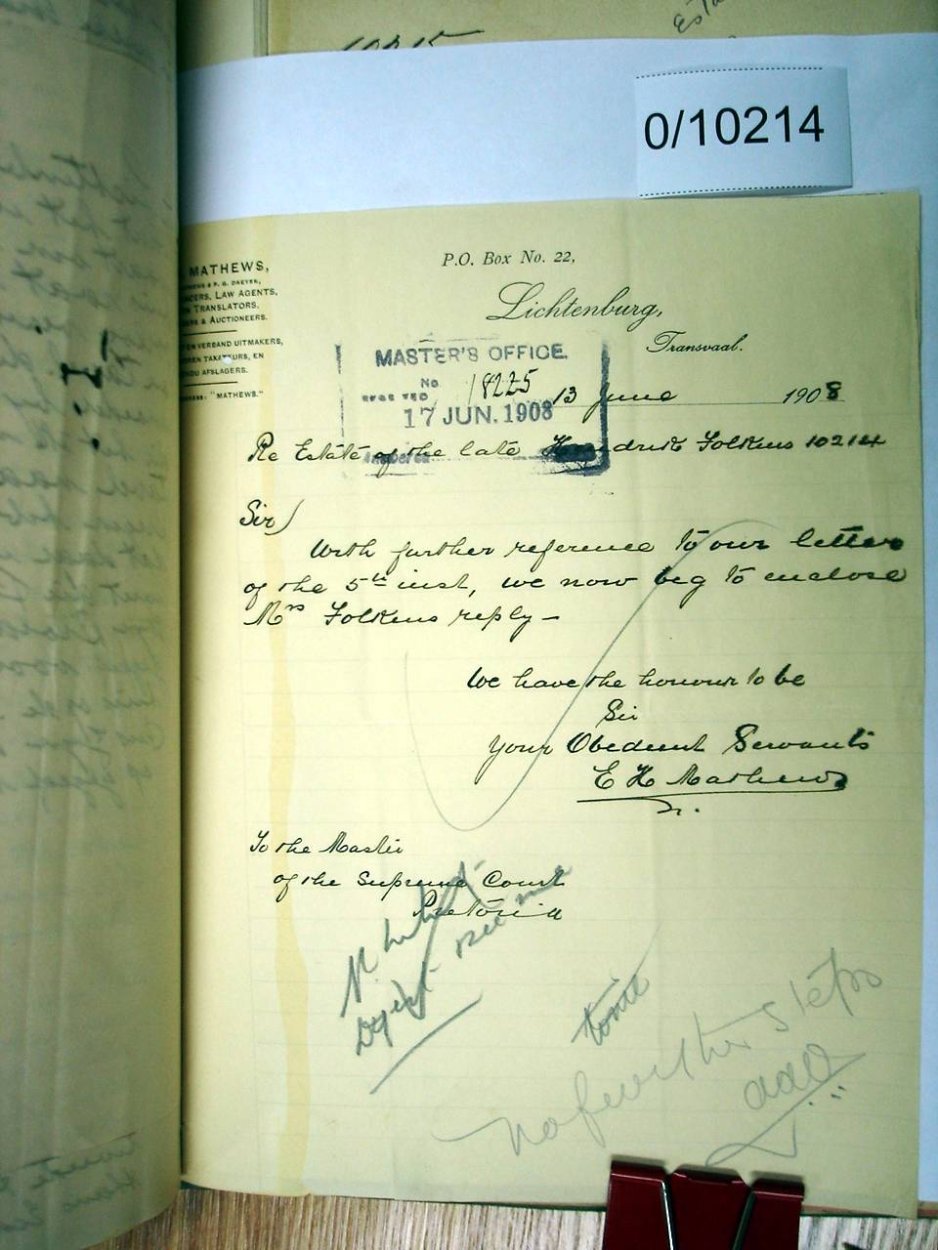 0/10214
MATHEWS,
LAW AGENTS,
TRANSLATORS,
& AUCTIONEERS.
VERBAND UITMAKERS,
EN
AFSLAGERS.
"MATHEWS."
P.O. Box No. 22,
Lichtenburg,
Transvaal.
MASTER'S OFFICE.
No 18225
17 JUN. 1908
13 June 1908
Re Estate of the late Hendrik Folkens 10214
Sir)
With further reference to our letter
of the 5th inst, we now beg to enclose
Mrs Folkens reply –
We have the honour to be
Sir
Your Obedient Servants
E H Mathews
To the Master
of the Supreme Court
Pretoria
no further steps